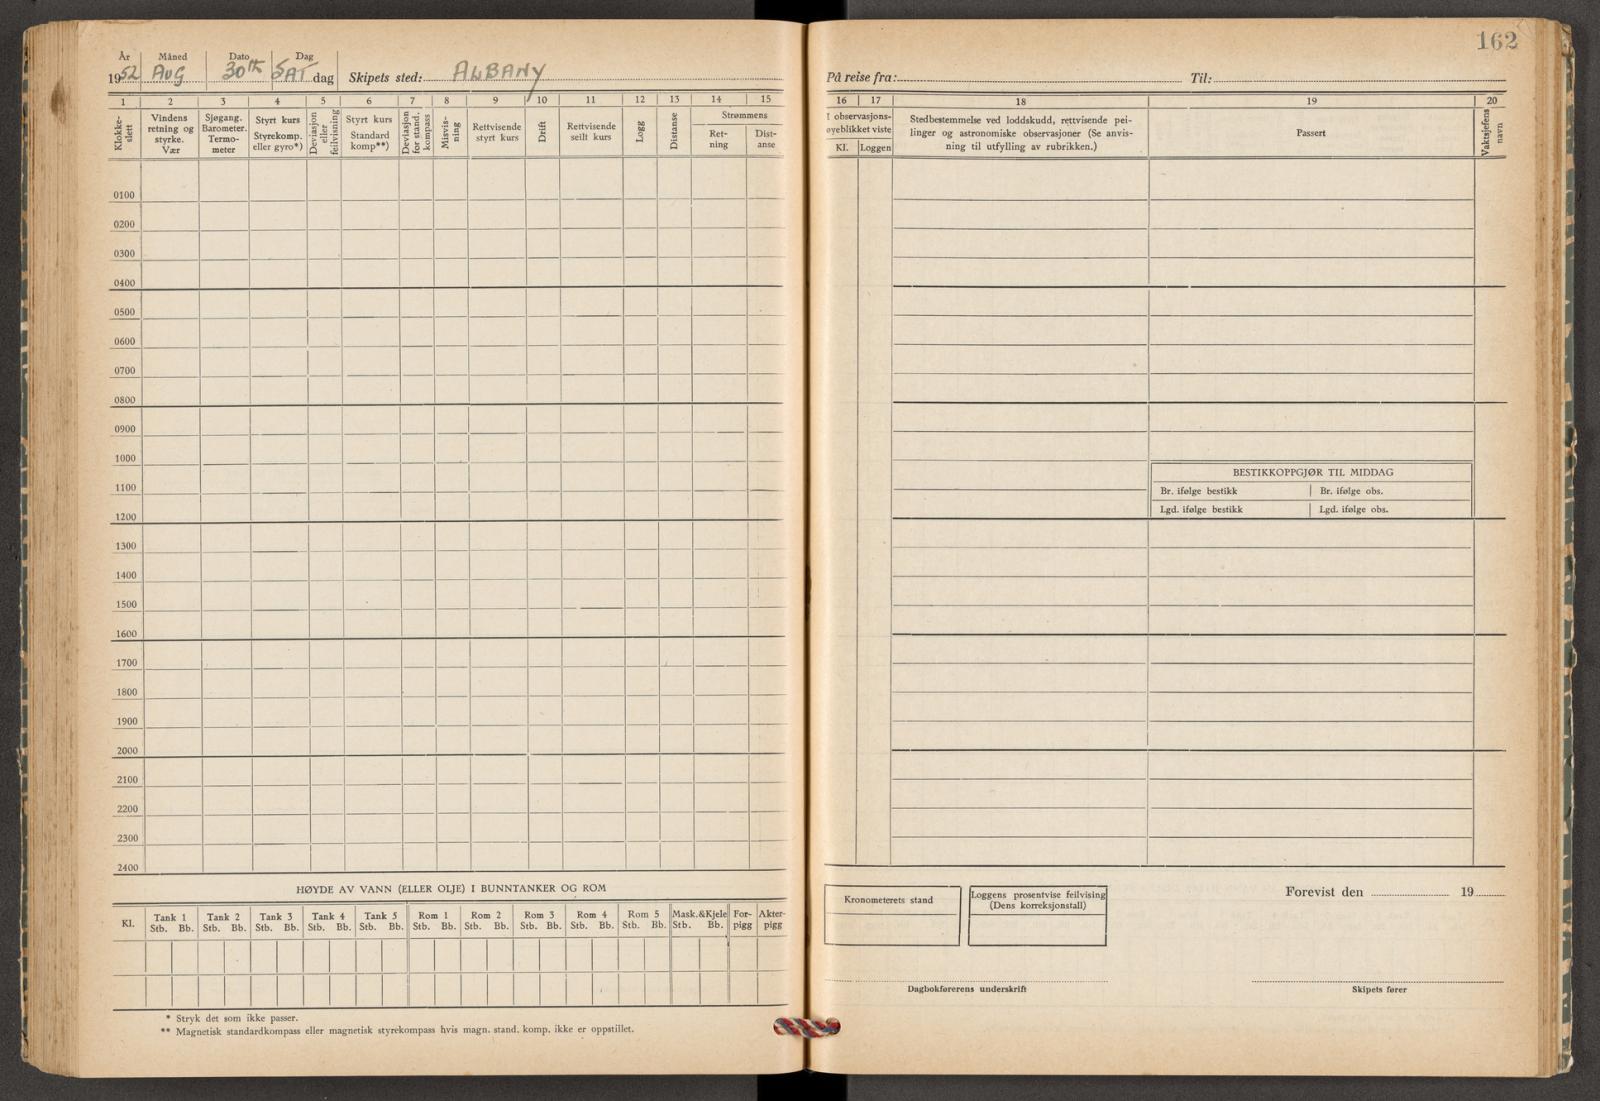 162
År Måned Dato Dag
1952 AUG 30th SAT dag Skipets sted: ALBANY
På reise fra: Til:
1 2 3 4 5 6 7 8 9 10 11 12 13 14 15
Klokke-slett
Vindens retning og styrke. Vær
Sjøgang. Barometer. Termo-meter
Styrt kurs Styrekomp. eller gyro*)
Deviasjon eller feilvisning
Styrt kurs Standard komp**)
Deviasjon for stand. kompass
Misvis-ning
Rettvisende styrt kurs
Drift
Rettvisende seilt kurs
Logg
Distanse
Strømmens
Ret-ning
Dist-anse
16 17 18 19 20
I observasjons-øyeblikket viste
Kl. Loggen
Stedbestemmelse ved loddskudd, rettvisende pei-
linger og astronomiske observasjoner (Se anvis-
ning til utfylling av rubrikken.)
Passert
Vaktsjefens navn
0100
0200
0300
0400
0500
0600
0700
0800
0900
1000
1100
1200
1300
1400
1500
1600
1700
1800
1900
2000
2100
2200
2300
2400
BESTIKKOPPGJØR TIL MIDDAG
Br. ifølge bestikk Br. ifølge obs.
Lgd. ifølge bestikk Lgd. ifølge obs.
HØYDE AV VANN (ELLER OLJE) I BUNNTANKER OG ROM
Kl. Tank 1 Tank 2 Tank 3 Tank 4 Tank 5 Rom 1 Rom 2 Rom 3 Rom 4 Rom 5 Mask.&Kjele For-pigg Akter-pigg
Stb. Bb. Stb. Bb. Stb. Bb. Stb. Bb. Stb. Bb. Stb. Bb. Stb. Bb. Stb. Bb. Stb. Bb. Stb. Bb. Stb. Bb.
* Stryk det som ikke passer.
** Magnetisk standardkompass eller magnetisk styrekompass hvis magn. stand. komp. ikke er oppstillet.
Kronometerets stand
Loggens prosentvise feilvising
(Dens korreksjonstall)
Forevist den 19
Dagbokførerens underskrift
Skipets fører